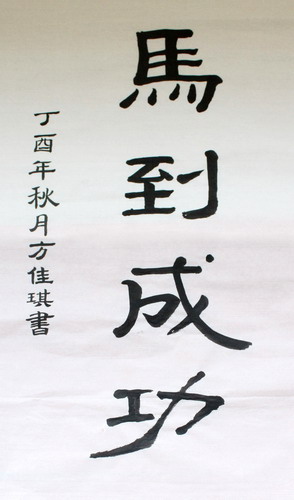 馬到成功
丁酉年秋月方佳琪書